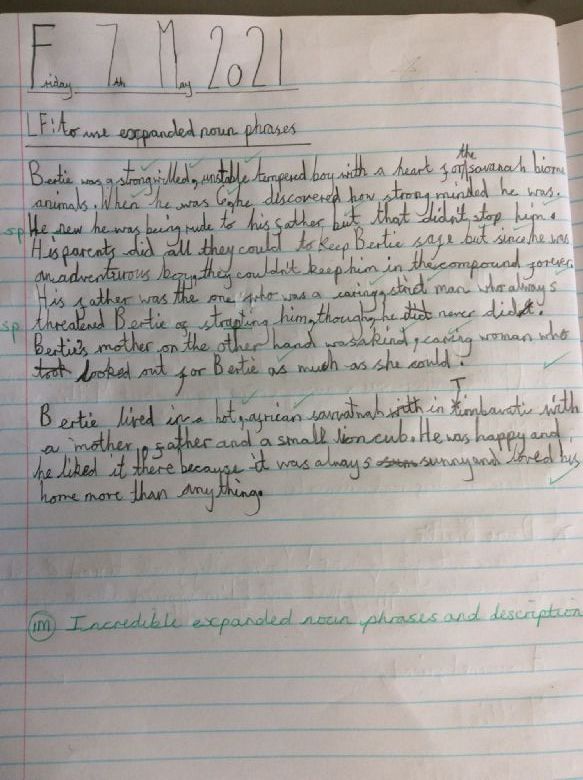 Friday 7th May 2021
LF: to use exppanded noun phrases
the
Bertie was a strongwilled, unstable tempered boy with a heart for savanah biome
animals. When he was 6, he discovered how strong minded he was.
sp He new he was being rude to his father but that didn't stop him.
His parents did all they could to keep Bertie safe but since he was
an adventurous boy, they couldn't keep him in the compound forever.
His father was the one who was a caring, strict man who always
sp threatened Bertie of strapting him, though, he did never did it.
Bertie's mother, on the other hand was a kind, caring woman who
took looked out for Bertie as much as she could.
Bertie lived in a hot, african savvatnah with in Timbavati with
a mother, father and a small lion cub. He was happy and
he liked it there because it was always sunny and loved his
home more than anything.
1M Incredible expanded noun phrases and description